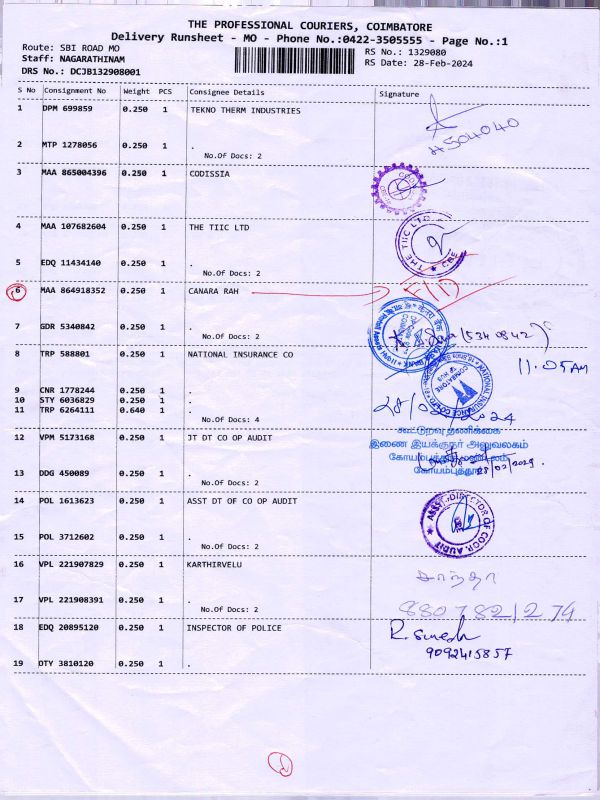 THE PROFESSIONAL COURIERS, COIMBATORE
Delivery Runsheet - MO - Phone No.:0422-3505555 - Page No.:1
Route: SBI ROAD MO
RS No.: 1329080
Staff: NAGARATHINAM
RS Date: 28-Feb-2024
DRS No.: DCJB132908001
S No Consignment No Weight PCS Consignee Details Signature
1 DPM 699859 0.250 1 TEKNO THERM INDUSTRIES
#504040
2 MTP 1278056 0.250 1 .
No.Of Docs: 2
3 MAA 865004396 0.250 1 CODISSIA
4 MAA 107682604 0.250 1 THE TIIC LTD
THE TIIC LTD
CBE
5 EDQ 11434140 0.250 1 .
No.Of Docs: 2
6 MAA 864918352 0.250 1 CANARA RAH
7 GDR 5340842 0.250 1 .
(5340842)
No.Of Docs: 2
8 TRP 588801 0.250 1 NATIONAL INSURANCE CO
11.05 AM
9 CNR 1778244 0.250 1 .
10 STY 6036829 0.250 1 .
11 TRP 6264111 0.640 1 .
28/02/2024
No.Of Docs: 4
12 VPM 5173168 0.250 1 JT DT CO OP AUDIT
கூட்டுறவு தணிக்கை
இணை இயக்குநர் அலுவலகம்
13 DDG 450089 0.250 1 .
கோயம்புத்தூர்
No.Of Docs: 2
14 POL 1613623 0.250 1 ASST DT OF CO OP AUDIT
ASST. DIRECTOR OF COOP. AUDIT
15 POL 3712602 0.250 1 .
No.Of Docs: 2
16 VPL 221907829 0.250 1 KARTHIRVELU
சாந்தா
17 VPL 221908391 0.250 1 .
8807821274
No.Of Docs: 2
18 EDQ 20895120 0.250 1 INSPECTOR OF POLICE
R. Suresh
9092415857
19 DTY 3810120 0.250 1 .